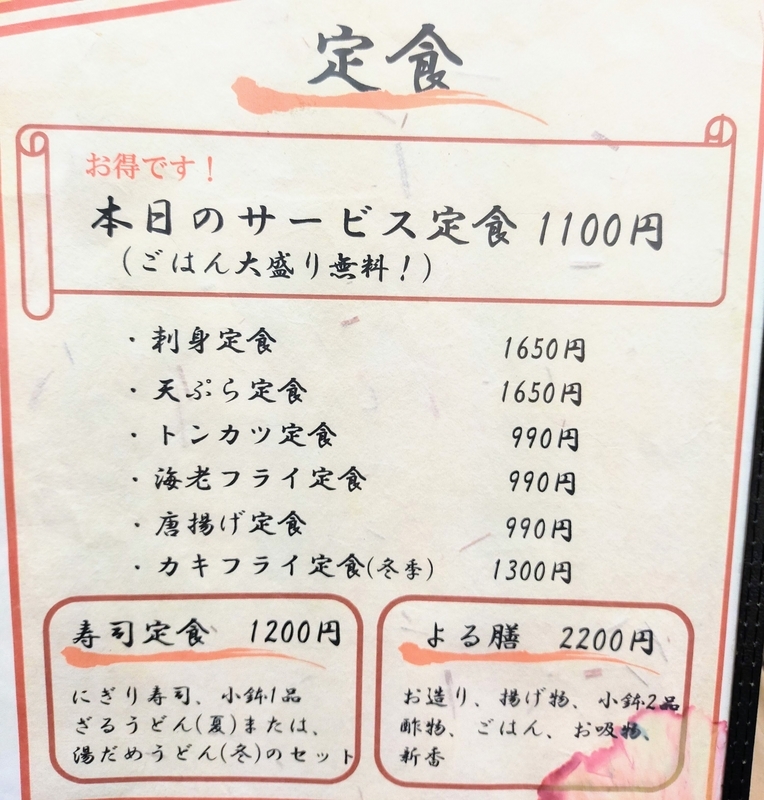 定食
お得です！
本日のサービス定食 1100円
（ごはん大盛り無料！）
・刺身定食 1650円
・天ぷら定食 1650円
・トンカツ定食 990円
・海老フライ定食 990円
・唐揚げ定食 990円
・カキフライ定食(冬季) 1300円
寿司定食 1200円
にぎり寿司、小鉢1品
ざるうどん(夏)または、
湯だめうどん(冬)のセット
よる膳 2200円
お造り、揚げ物、小鉢2品
酢物、ごはん、お吸物、
新香